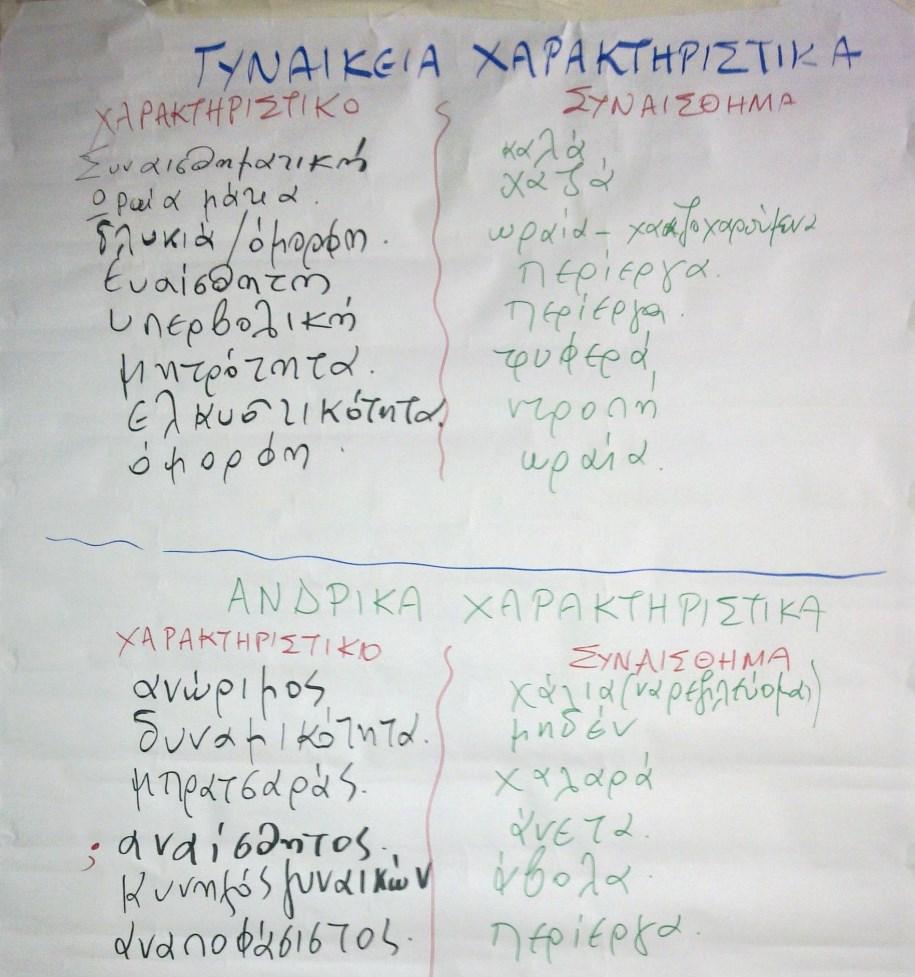 ΓΥΝΑΙΚΕΙΑ ΧΑΡΑΚΤΗΡΙΣΤΙΚΑ
ΧΑΡΑΚΤΗΡΙΣΤΙΚΟ ΣΥΝΑΙΣΘΗΜΑ
Συναισθηματική καλά
Ωραία μάτια. χαζά
Γλυκιά / όμορφη. ωραία -
Ευαίσθητη περίεργα.
Υπερβολική περίεργα.
μητρότητα. τρυφερά
Ελκυστικότητα. ντροπή
όμορφη. ωραία.
ΑΝΔΡΙΚΑ ΧΑΡΑΚΤΗΡΙΣΤΙΚΑ
ΧΑΡΑΚΤΗΡΙΣΤΙΚΟ ΣΥΝΑΙΣΘΗΜΑ
ανώριμος χάλια
δυναμικότητα. μηδέν
μπρατσαράς. χαλαρά
; αναίσθητος. άνετα.
κυνηγός γυναικών άβολα.
αναποφάσιστος. περίεργα.